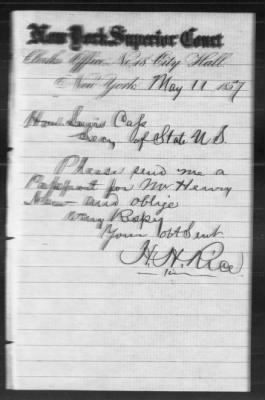 New York Superior Court
Clerks Office, No. 18 City Hall.
New York May 11 1857
Hon Lewis Cass
Secy of State U.S.
Please send me a
Passport for Mr Henry
and oblige
very Respy
Your obt Servt
H. H. Rice